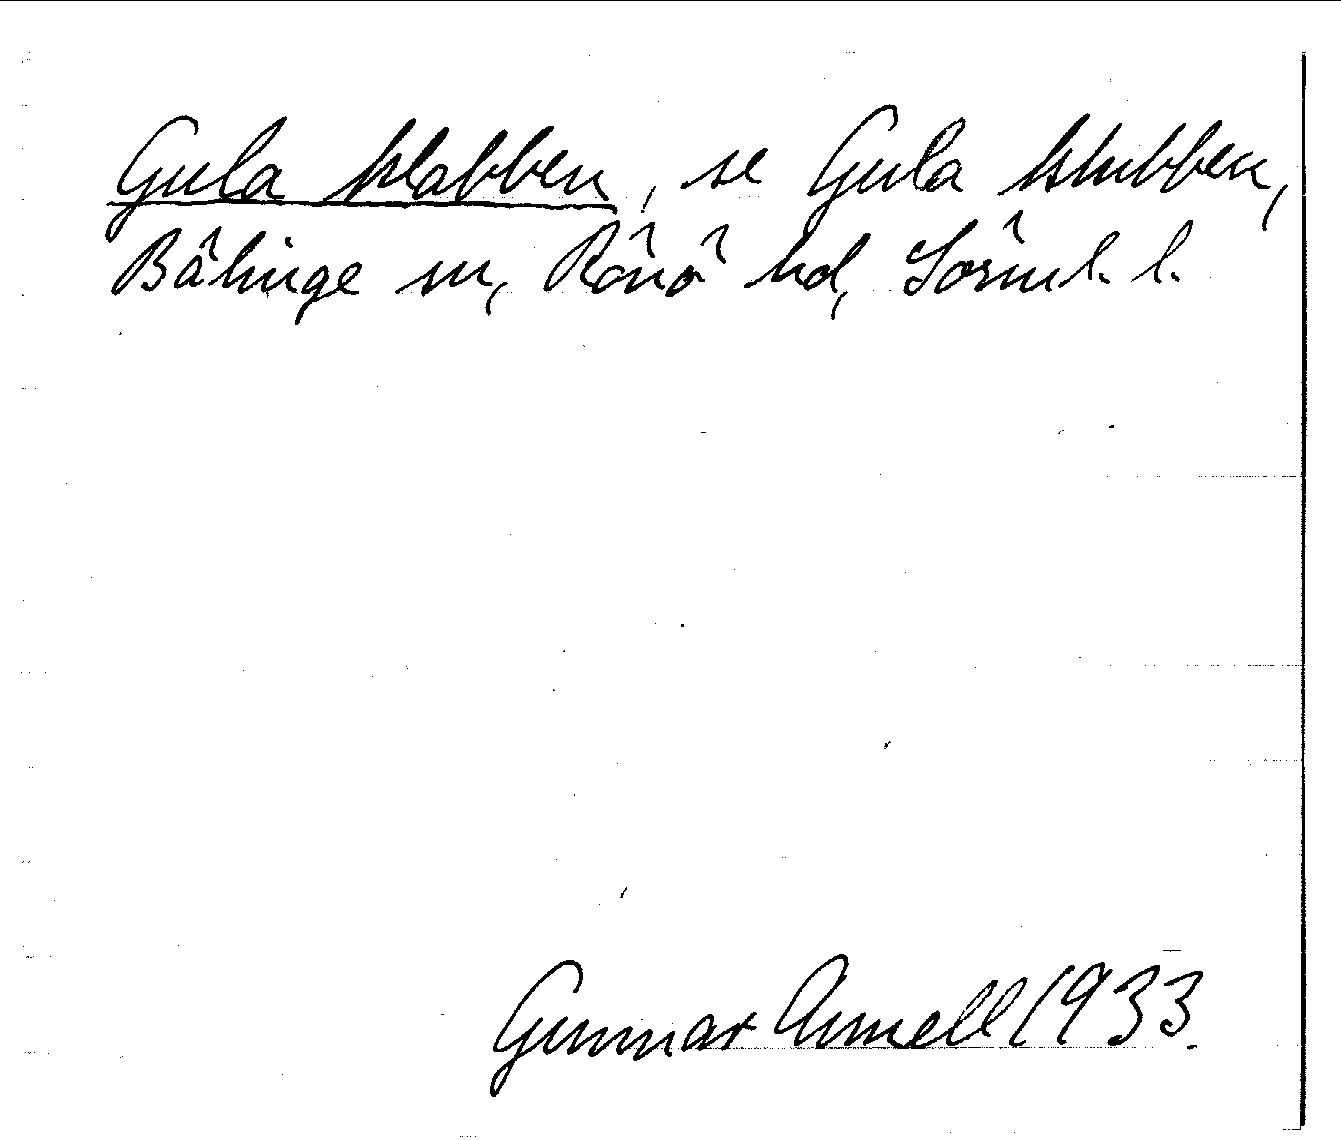 Gula klabben, se Gula klubben,
Bälinge sn, Rönö hd, Sörml. l.
Gunnar Arnell 1933.